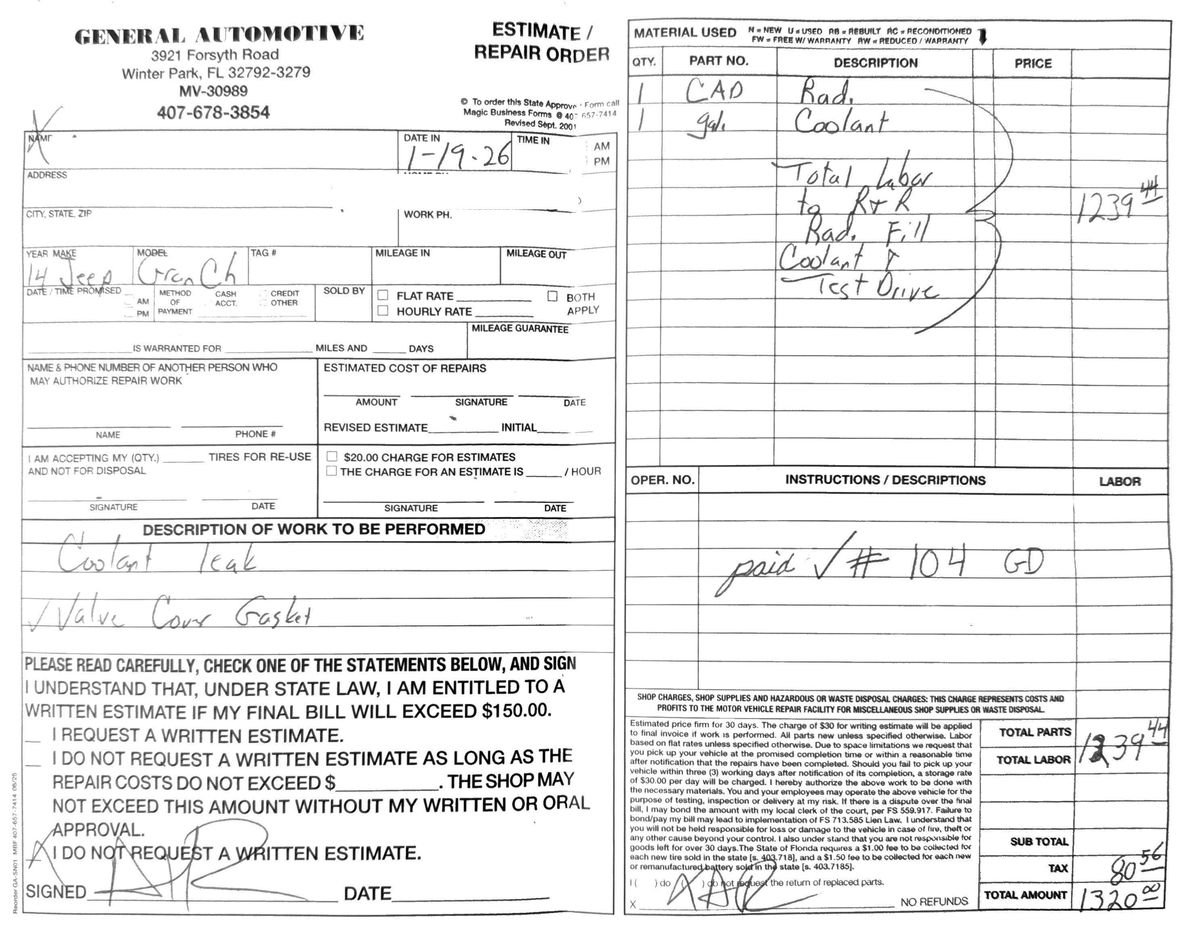 GENERAL AUTOMOTIVE
3921 Forsyth Road
Winter Park, FL 32792-3279
MV-30989
407-678-3854
ESTIMATE /
REPAIR ORDER
© To order this State Approve Form call
Magic Business Forms @ 407 657-7414
Revised Sept. 2001
X
NAME
DATE IN
1-19-26
TIME IN
AM
PM
ADDRESS
CITY, STATE, ZIP
WORK PH.
YEAR MAKE
14 Jeep
MODEL
Gran Ch
TAG #
MILEAGE IN
MILEAGE OUT
DATE / TIME PROMISED
AM
PM
METHOD
OF
PAYMENT
CASH
ACCT.
CREDIT
OTHER
SOLD BY
FLAT RATE
HOURLY RATE
BOTH
APPLY
MILEAGE GUARANTEE
IS WARRANTED FOR MILES AND DAYS
NAME & PHONE NUMBER OF ANOTHER PERSON WHO
MAY AUTHORIZE REPAIR WORK
NAME PHONE #
ESTIMATED COST OF REPAIRS
AMOUNT SIGNATURE DATE
REVISED ESTIMATE INITIAL
I AM ACCEPTING MY (QTY.) TIRES FOR RE-USE
AND NOT FOR DISPOSAL
SIGNATURE DATE
$20.00 CHARGE FOR ESTIMATES
THE CHARGE FOR AN ESTIMATE IS / HOUR
SIGNATURE DATE
DESCRIPTION OF WORK TO BE PERFORMED
Coolant leak
✓ Valve Cover Gasket
PLEASE READ CAREFULLY, CHECK ONE OF THE STATEMENTS BELOW, AND SIGN
I UNDERSTAND THAT, UNDER STATE LAW, I AM ENTITLED TO A
WRITTEN ESTIMATE IF MY FINAL BILL WILL EXCEED $150.00.
I REQUEST A WRITTEN ESTIMATE.
I DO NOT REQUEST A WRITTEN ESTIMATE AS LONG AS THE
REPAIR COSTS DO NOT EXCEED $ . THE SHOP MAY
NOT EXCEED THIS AMOUNT WITHOUT MY WRITTEN OR ORAL
APPROVAL.
X I DO NOT REQUEST A WRITTEN ESTIMATE.
SIGNED DATE
Reorder GA-SN01 MBF 407-657-7414
MATERIAL USED N = NEW U = USED RB = REBUILT RC = RECONDITIONED
FW = FREE W/ WARRANTY RW = REDUCED / WARRANTY
QTY. PART NO. DESCRIPTION PRICE
1 CAD Rad.
1 gal. Coolant
Total Labor
to R & R
1239 44
Rad. Fill
Coolant &
Test Drive
OPER. NO. INSTRUCTIONS / DESCRIPTIONS LABOR
paid ✓ # 104 GD
SHOP CHARGES, SHOP SUPPLIES AND HAZARDOUS OR WASTE DISPOSAL CHARGES: THIS CHARGE REPRESENTS COSTS AND
PROFITS TO THE MOTOR VEHICLE REPAIR FACILITY FOR MISCELLANEOUS SHOP SUPPLIES OR WASTE DISPOSAL.
Estimated price firm for 30 days. The charge of $30 for writing estimate will be applied
to final invoice if work is performed. All parts new unless specified otherwise. Labor
based on flat rates unless specified otherwise. Due to space limitations we request that
you pick up your vehicle at the promised completion time or within a reasonable time
after notification that the repairs have been completed. Should you fail to pick up your
vehicle within three (3) working days after notification of its completion, a storage rate
of $30.00 per day will be charged. I hereby authorize the above work to be done with
the necessary materials. You and your employees may operate the above vehicle for the
purpose of testing, inspection or delivery at my risk. If there is a dispute over the final
bill, I may bond the amount with my local clerk of the court, per FS 559.917. Failure to
bond/pay my bill may lead to implementation of FS 713.585 Lien Law. I understand that
you will not be held responsible for loss or damage to the vehicle in case of fire, theft or
any other cause beyond your control. I also under stand that you are not responsible for
goods left for over 30 days.The State of Florida requires a $1.00 fee to be collected for
each new tire sold in the state [s. 403.718], and a $1.50 fee to be collected for each new
or remanufactured battery sold in the state [s. 403.7185].
I ( ) do ( ) do not request the return of replaced parts.
X NO REFUNDS
TOTAL PARTS
TOTAL LABOR
1239 44
SUB TOTAL
TAX 80 56
TOTAL AMOUNT 1320 00